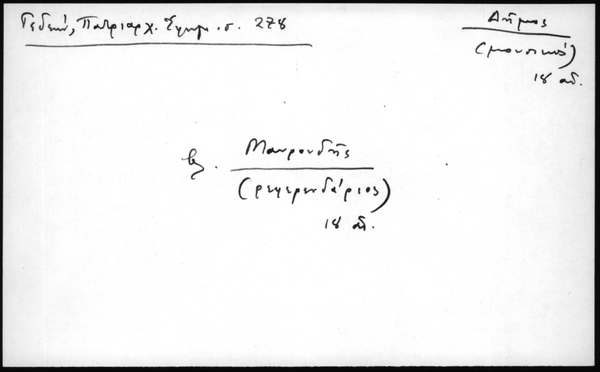 Γεδεών, Πατριαρχ. Εφημ. σ. 278
Δῆμος
(μουσικός)
18 αἰ.
βλ. Μαυρουδῆς
(ρεφερενδάριος)
18 αἰ.